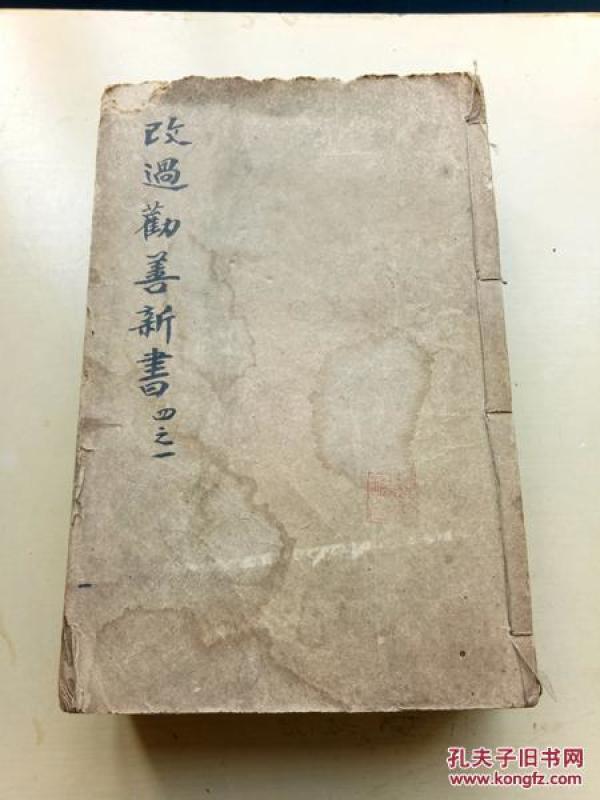 改過勸善新書四之一
孔夫子旧书网
www.kongfz.com